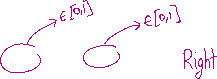 ∈ [0,1]
∈ [0,1]
Right